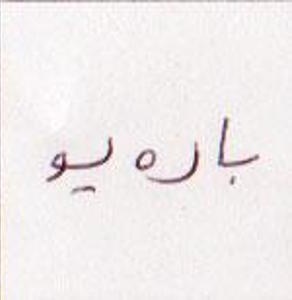 باره یو